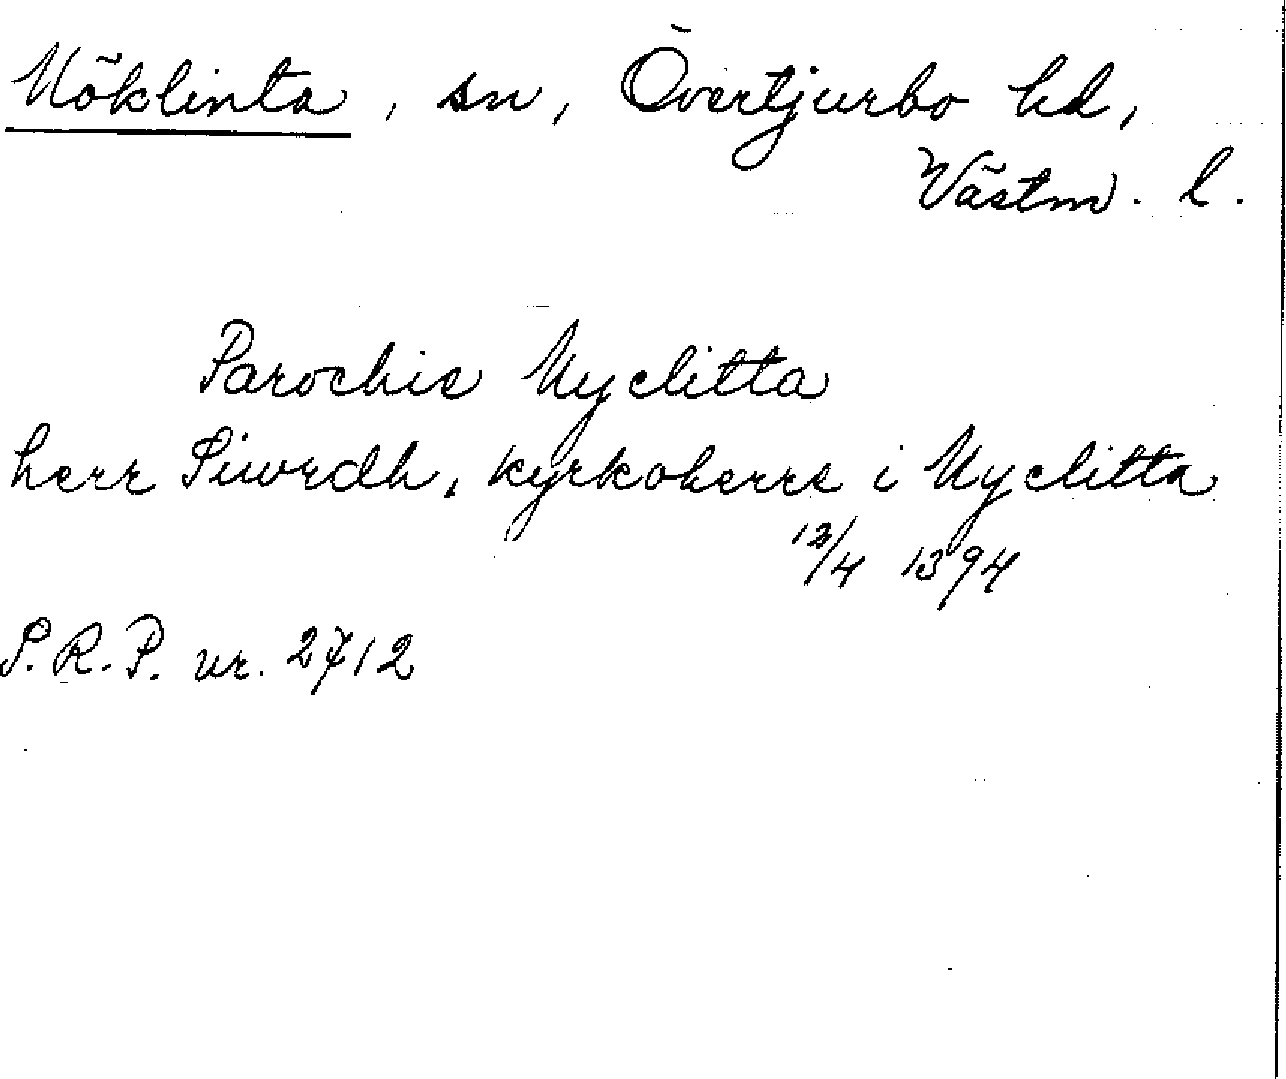 Möklinta, sn, Övertjurbo hd,
Västm. l.
Parochie Myclitta
herr Siwrdh, kyrkoherre i Myclitta
12/4 1394
S.R.P. nr. 2712